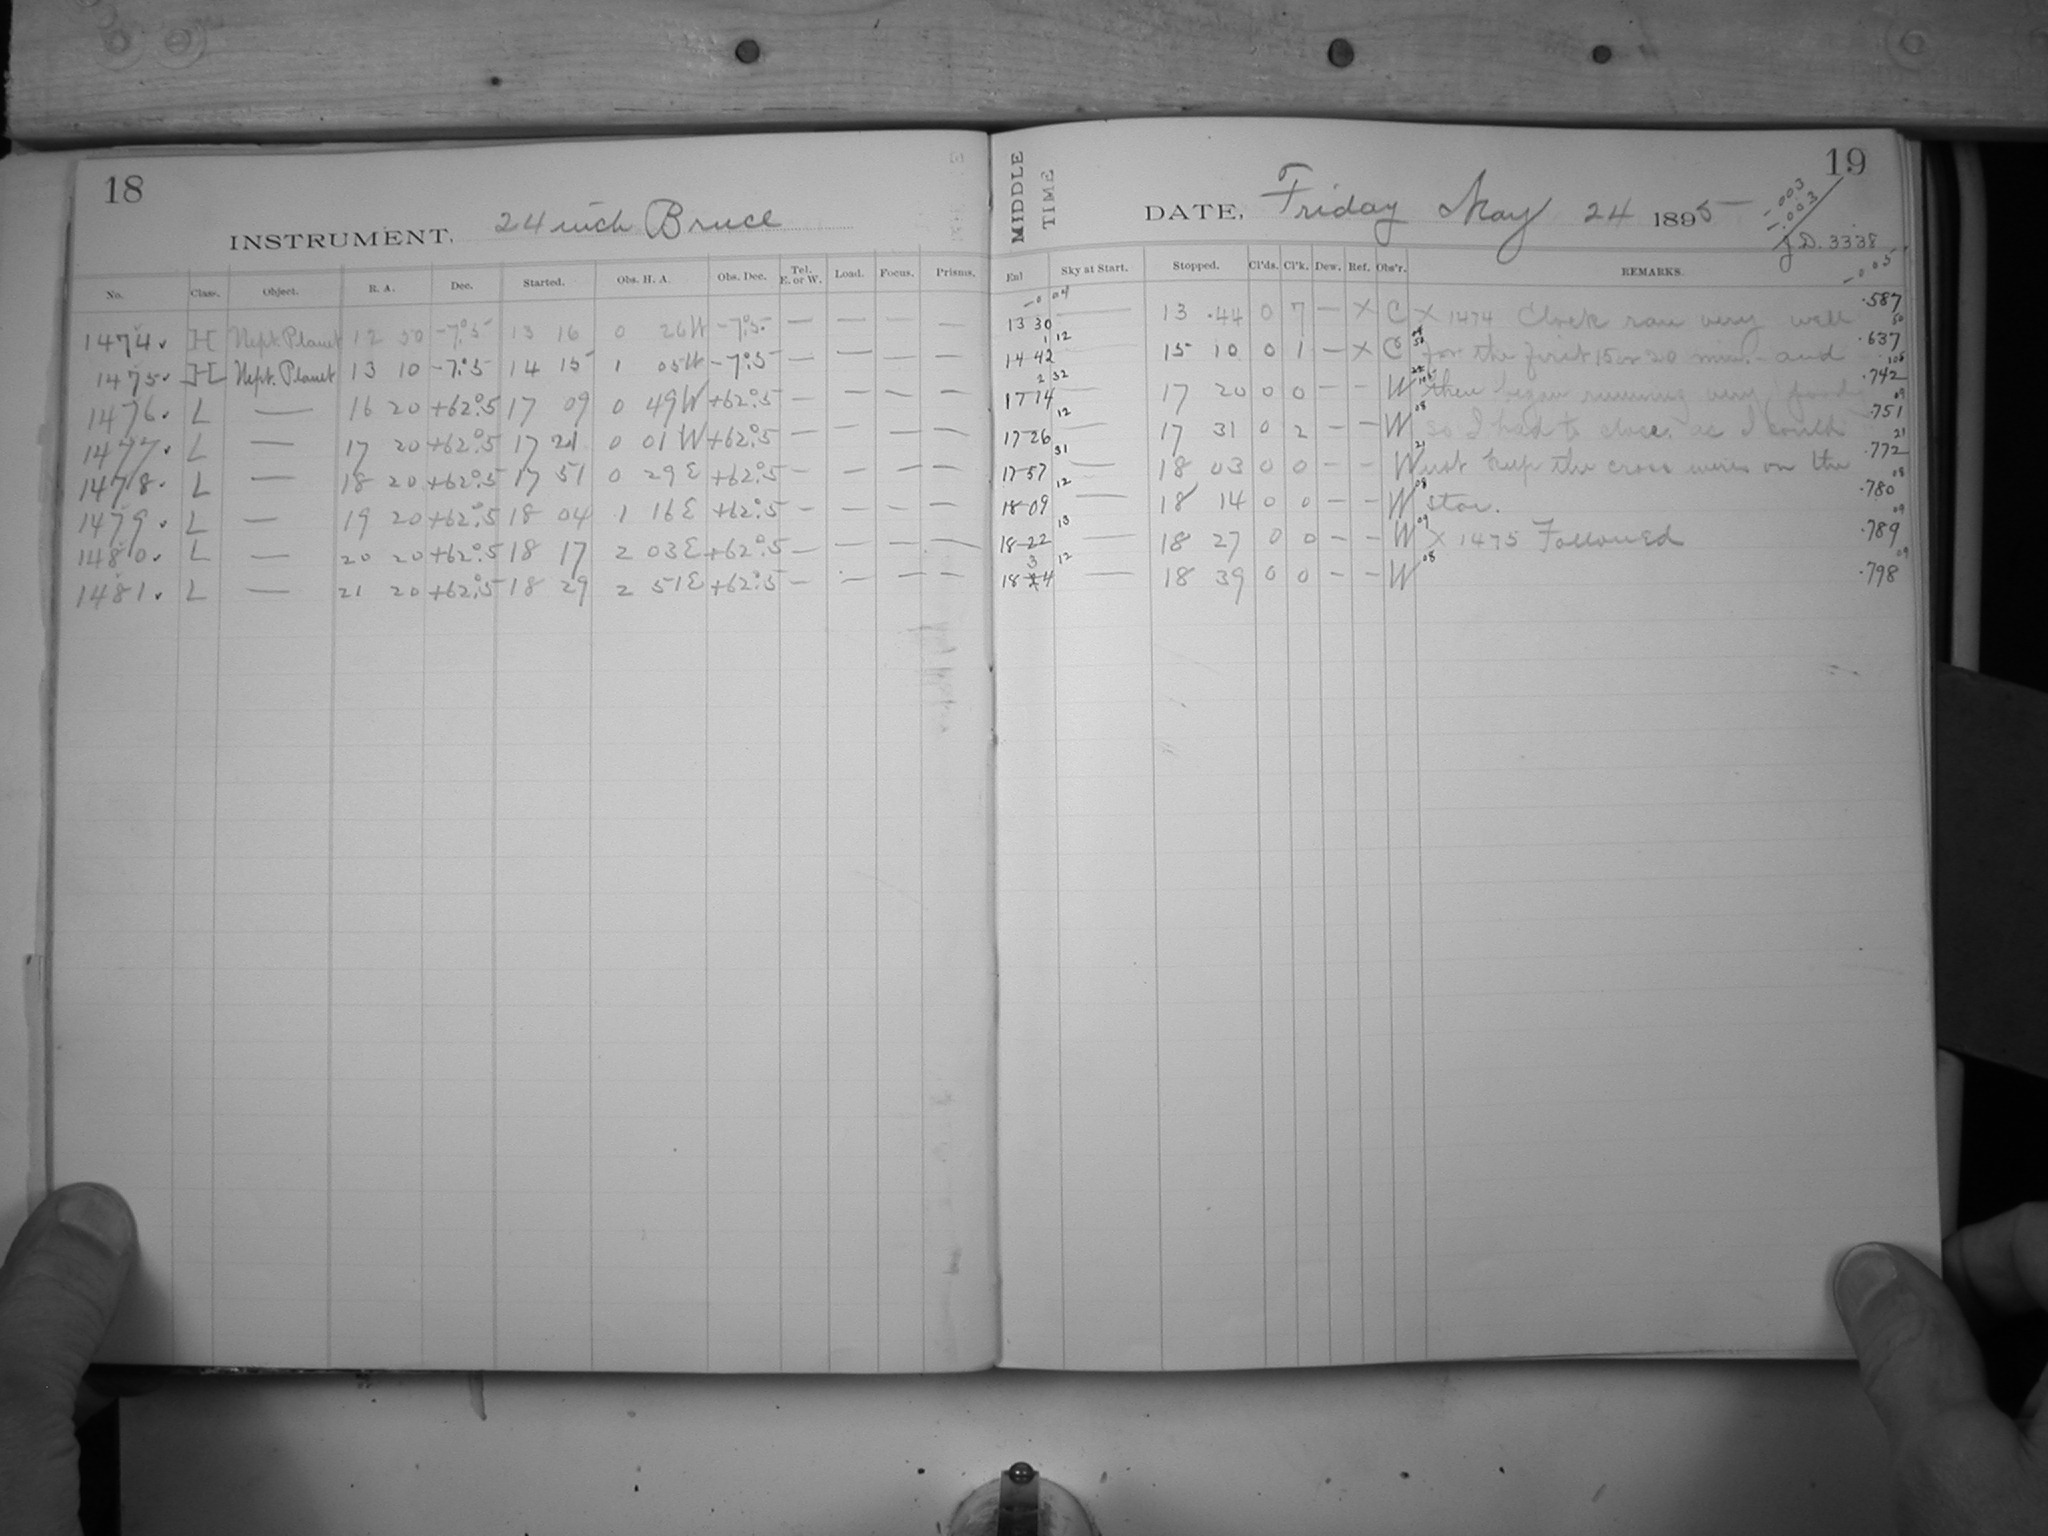 18
INSTRUMENT, 24 inch Bruce
No. Class. Object. R. A. Dec. Started. Obs. H. A. Obs. Dec. Tel. E. or W. Load. Focus. Prisms.
1474. H Nept. Planet 12 50 -7°.5 13 16 0 26W -7°.5 — — — —
1475. H Nept. Planet 13 10 -7°.5 14 15 1 05W -7°.5 — — — —
1476. L — 16 20 +62°.5 17 09 0 49W +62°.5 — — — —
1477. L — 17 20 +62°.5 17 21 0 01W +62°.5 — — — —
1478. L — 18 20 +62°.5 17 51 0 29E +62°.5 — — — —
1479. L — 19 20 +62°.5 18 04 1 16E +62°.5 — — — —
1480. L — 20 20 +62°.5 18 17 2 03E +62°.5 — — — —
1481. L — 21 20 +62°.5 18 29 2 51E +62°.5 — — — —
19
MIDDLE TIME
DATE, Friday May 24 1895
-.003
-.003
J.D. 3338
-.005
Ex1 Sky at Start. Stopped. Cl'ds. Cl'k. Dew. Ref. Obs'r. REMARKS.
13 30 — 13 44 0 7 — X C X 1474 Clock ran very well .587
14 42 — 15 10 0 1 — X C for the first 15 or 20 min. and .637
17 14 — 17 20 0 0 — — W then began running very .742
17 26 — 17 31 0 2 — — W so I had to close, as I could .751
17 57 — 18 03 0 0 — — W not keep the cross wires on the .772
18 09 — 18 14 0 0 — — W star. .780
18 22 — 18 27 0 0 — — W X 1475 Followed .789
18 34 — 18 39 0 0 — — W .798